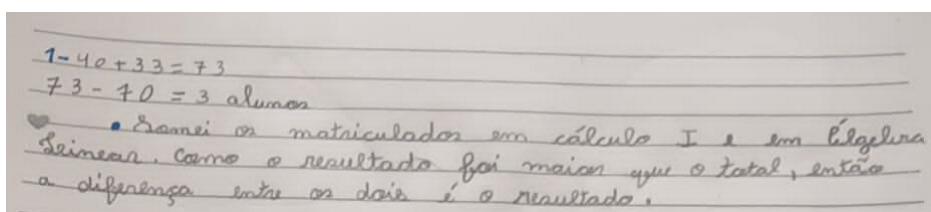 1- 40 + 33 = 73
73 - 70 = 3 alunos
• Somei os matriculados em cálculo I e em Álgebra
Leinear. Como o resultado foi maior que o total, então
a diferença entre os dois é o resultado.